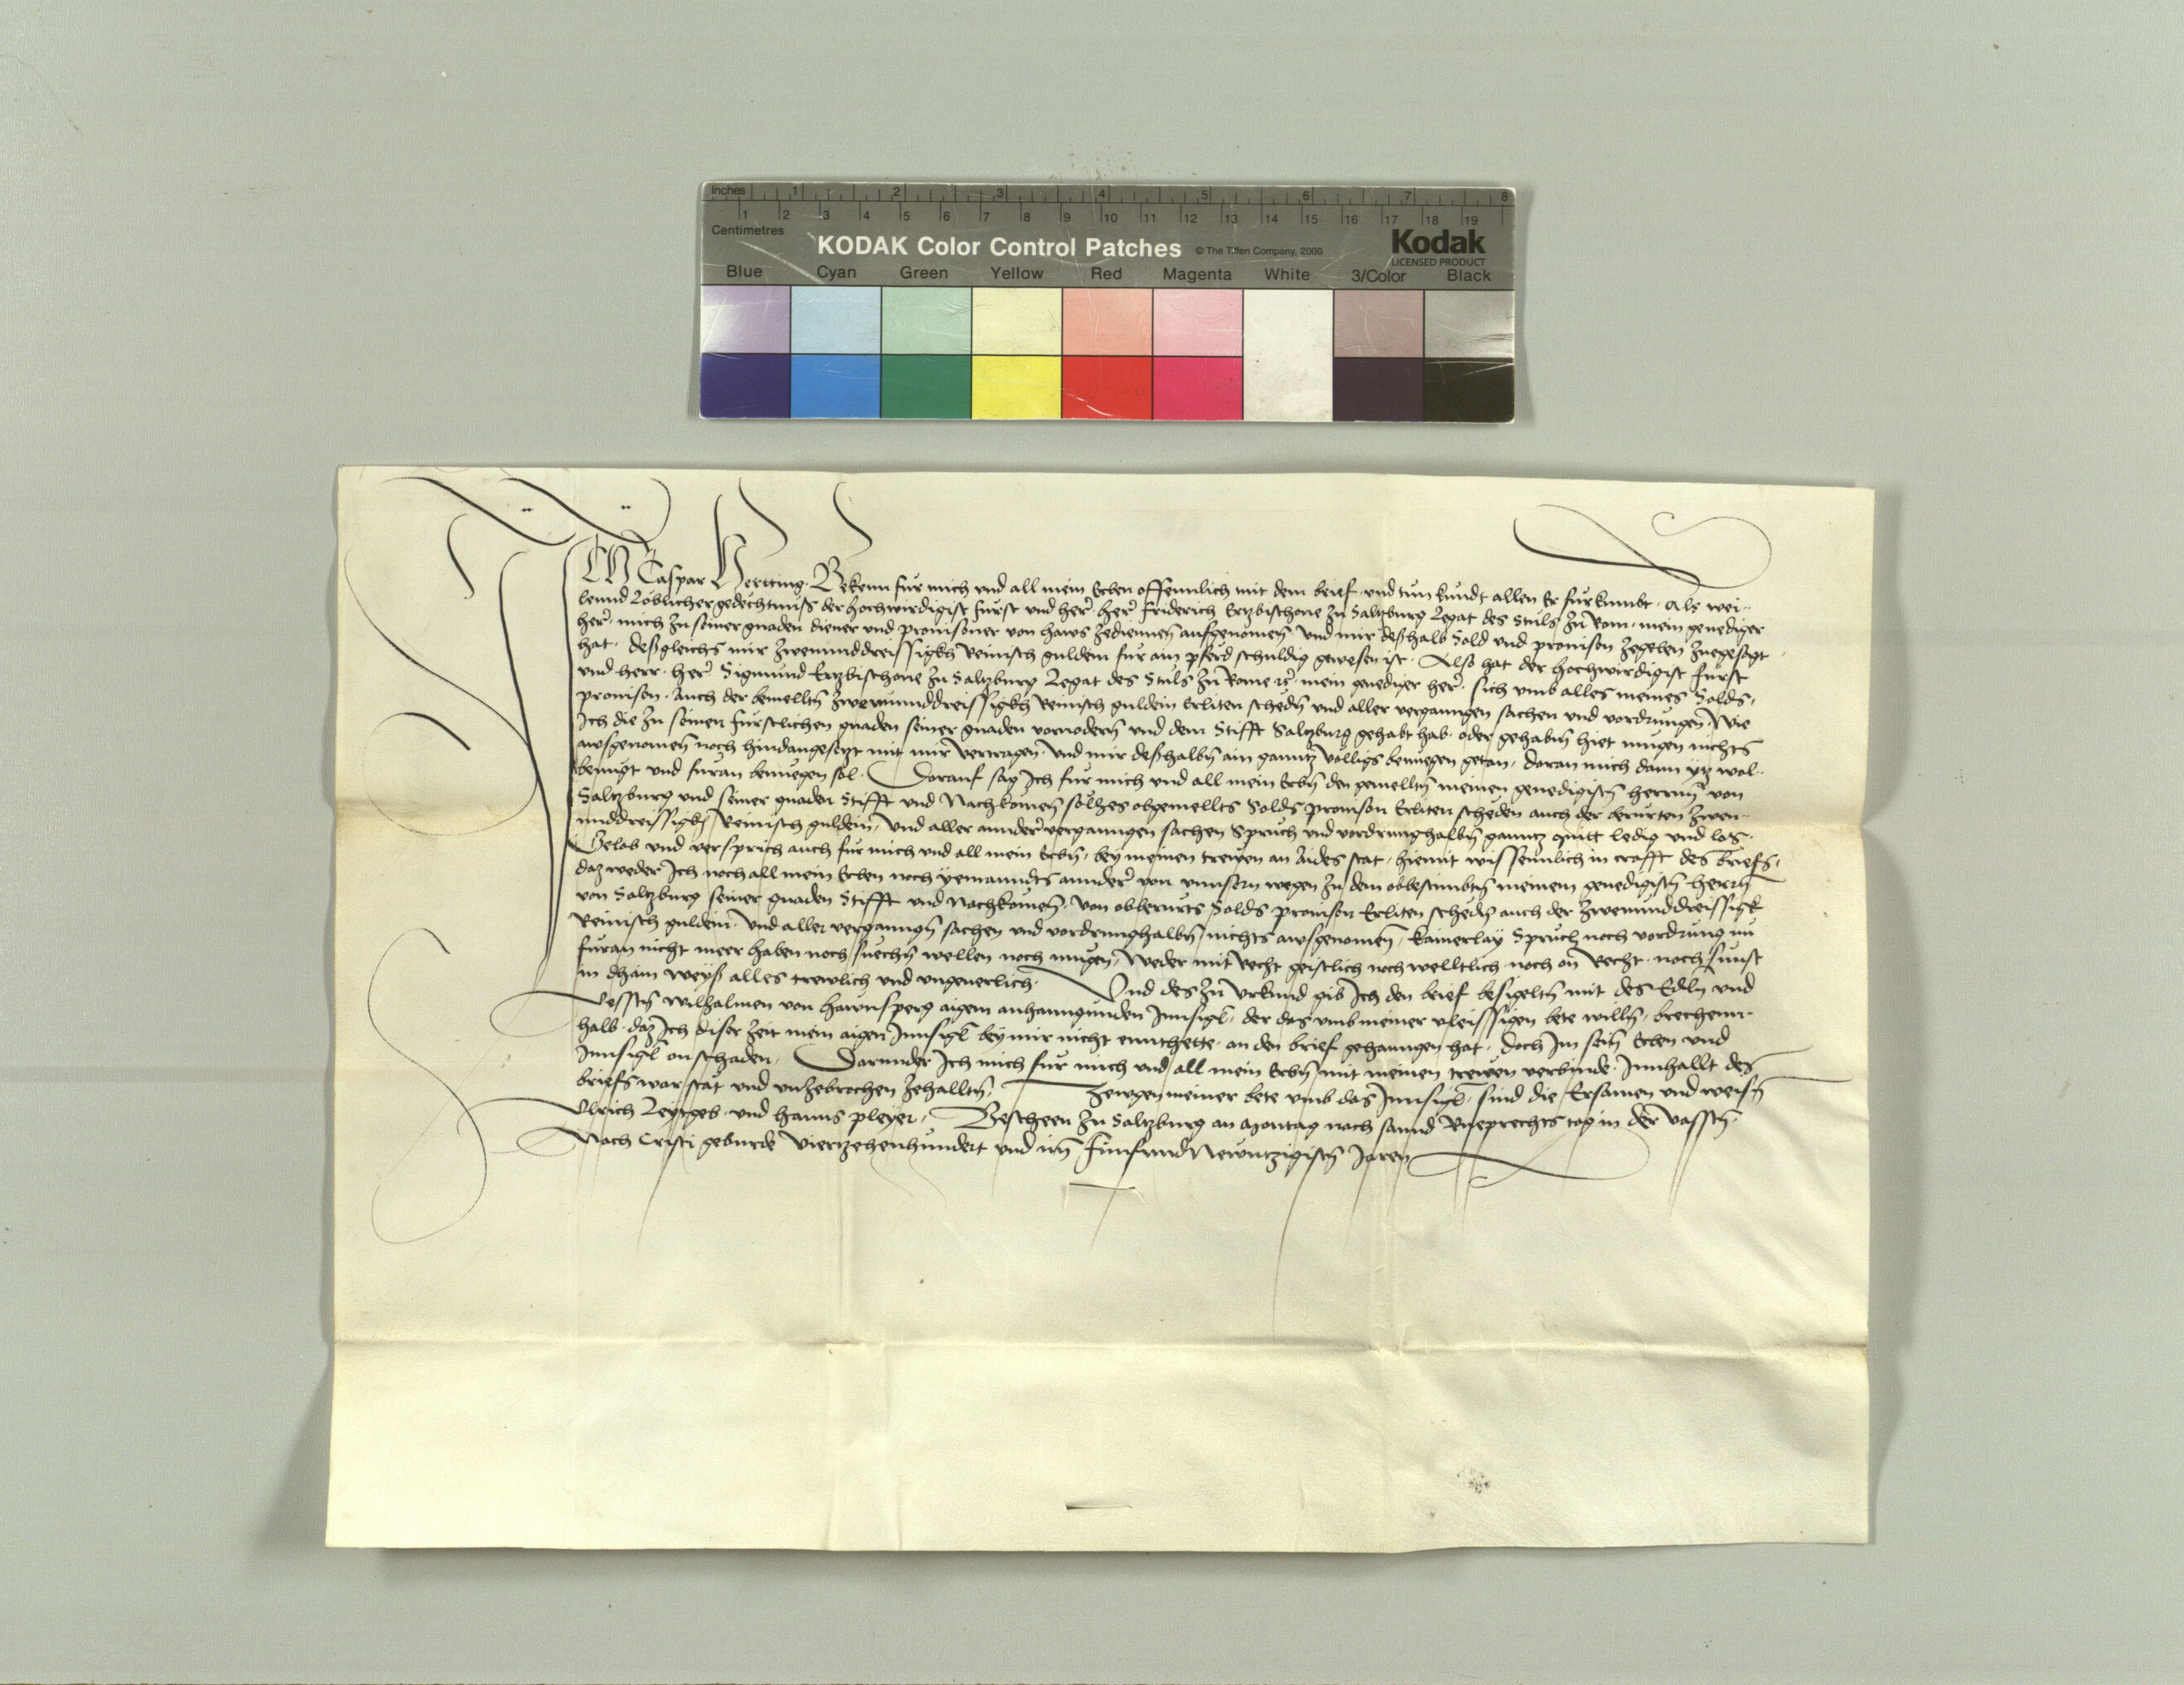 Inches 1 2 3 4 5 6 7 8
1 2 3 4 5 6 7 8 9 10 11 12 13 14 15 16 17 18 19
Centimetres
KODAK Color Control Patches © The Tiffen Company, 2000 Kodak
LICENSED PRODUCT
Blue Cyan Green Yellow Red Magenta White 3/Color Black
Ich Caspar Hertting. Bekenn fur mich vnd all mein Erben offennlich mit dem brief. vnd tun kundt allen Er furkumbt. Als wei-
lennd Löblicher gedechtnuss der hochwirdigist fürst vnd her. her Friderich Ertzbischoue zu Saltzburg Legat des Stuls zu Rom. mein genediger
her. mich zu seiner gnaden diener vnd prouisoner von haws zediennen aufgenomen. vnd mir deßhalb Sold vnd prouison zegeben zuegesagt
hat. deßgleichs mir zwenunddreissigkh Reinisch guldein fur ain pferd schuldig gewesen ist. Also hat der hochwirdigist Furst
vnd herr. her Sigmund Ertzbischoue zu Saltzburg Legat des Stuls zu Rome rc. mein genediger her. sich vmb alles meines Solds,
prouison. Auch der bemellten zwenunddreissigkh Reinisch guldein Erliten scheden vnd aller verganngen sachen vnd vordrungen. Wie
Ich die zu seinen furstlichen gnaden seiner gnaden voruodern vnd dem Stifft Saltzburg gehabt hab. oder gehaben hiet mugen nichts
awsgenomen noch hindangesetzt mit mir vertragen. Vnd mir deßhalben ain ganntz völligs benuegen getan. daran mich dann ytz wol-
benugt vnd furan benuegen sol. Darauf sag Ich fur mich vnd all mein Erben den gemellten meinen genedigisten herrnn von
Saltzburg vnd seiner gnaden Stifft vnd Nachkomen solhes obgemellts Solds prouison Erliten scheden auch der berurten zwen-
unddreissigkh Reinisch guldein, Vnd aller annder verganngen sachen Spruch vnd vordrunghalben ganntz quitt ledig vnd los.
Gelob vnd versprich auch fur mich vnd all mein Erben, bey meinen trewen an Aides stat, hiemit wissennlich in crafft des briefs,
daz weder Ich noch all mein Erben noch yemanndts annder von vnnsern wegen zu dem obbestimbten meinem genedigisten herrn
von Saltzburg seiner gnaden Stifft vnd Nachkomen. Von obberurts Solds prouison Erliten scheden auch der zwenunddreissigk
Reinisch guldein. Vnd aller verganngen sachen vnd vordrunghalben, nichts awsgenomen, kainerlay Spruch noch vordrung nu
furan nicht meer haben noch suechen wellen noch mugen, Weder mit Recht geistlich noch welltlich noch on Recht. noch sunst
in dhain weyß alles trewlich vnd vngeuerlich. Vnd des zu vrkund gib Ich den brief besigelten mit des Edln vnd
Vessten Wilhalmen von Hawnsperg aigem anhanngunden Innsigl, der das vmb meiner vleissigen bete willen,
halb. daz Ich diser zeit mein aigen Innsigl bey mir nicht ennthette. an den brief gehanngen hat. doch Im sein Erben vnd
Innsigl on schaden. Darunder Ich mich fur mich vnd all mein Erben mit meinen trewen verbinde. Innhallt des
briefs war stät vnd vnzebrochen zehallten. Zewgen meiner bete vmb das Innsigl, sind die Ersamen vnd weisen
Vlrich Leytgeb. vnd Hanns pleyer. Bescheen zu Saltzburg an Montag nach sannd Rueprechts tag in der Vassten.
Nach Cristi geburde Viertzehenhundert vnd im Funfundnewntzigisten Jaren